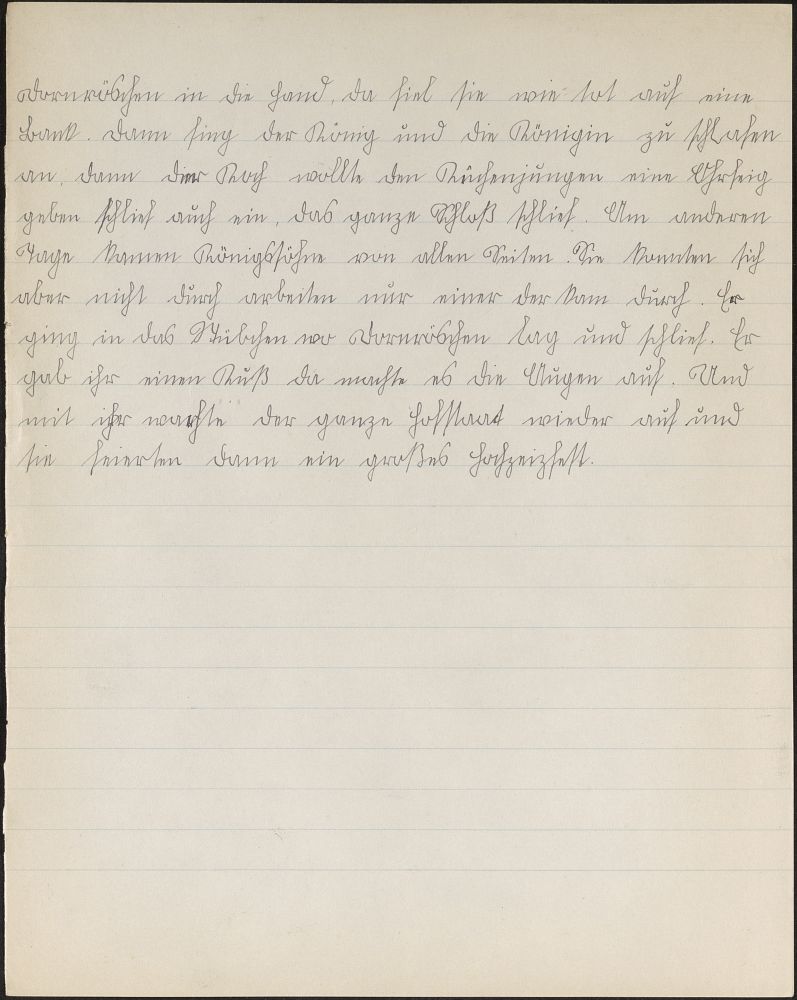 Dornröschen in die Hand, da fiel sie wie tot auf eine
Bank. Dann fing der König und die Königin zu schlafen
an, dann der Koch wollte den Küchenjungen eine Ohrfeig
geben schlief auch ein, das ganze Schloß schlief. Am anderen
Tage kamen Königssöhne von allen Seiten. Sie konnten sich
aber nicht durch arbeiten nur einer der kam durch. Er
ging in das Stübchen wo Dornröschen lag und schlief. Er
gab ihr einen Kuß da machte es die Augen auf. Und
mit ihr wachte der ganze Hofstaat wieder auf und
sie feierten dann ein großes Hochzeizfest.